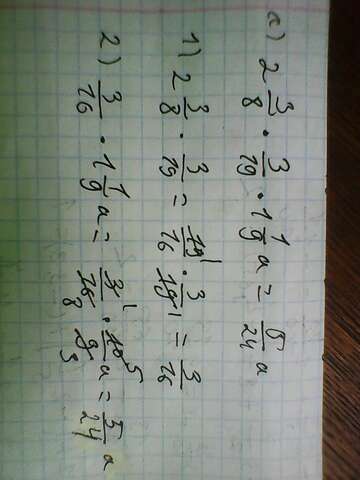 а) 2 3/8 · 3/19 · 1 1/9 a = 5/24 a
1) 2 3/8 · 3/19 = 19¹/16 · 3/19¹ = 3/16
2) 3/16 · 1 1/9 a = 3¹/16₈ · 10⁵/9₃ a = 5/24 a